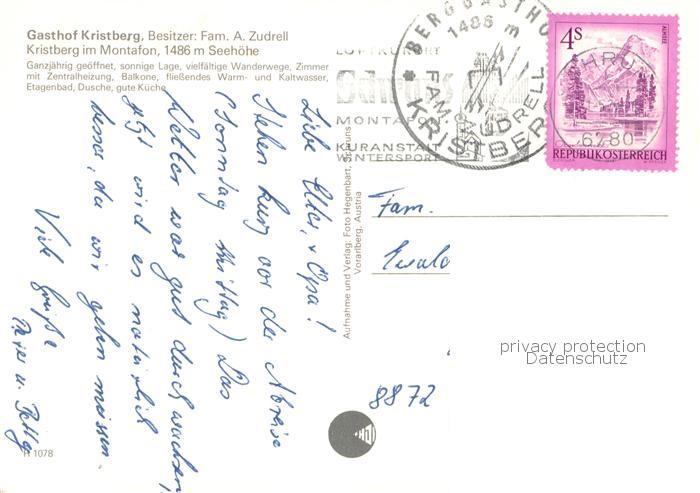 Gasthof Kristberg, Besitzer: Fam. A. Zudrell
Kristberg im Montafon, 1486 m Seehöhe
Ganzjährig geöffnet, sonnige Lage, vielfältige Wanderwege, Zimmer
mit Zentralheizung, Balkone, fließendes Warm- und Kaltwasser,
Etagenbad, Dusche, gute Küche
Liebe Eltern + Opa!
Stehen kurz vor der Abreise
(Sonntag Mittag) Das
Wetter war gut durchwachsen,
jetzt wird es natürlich
besser, da wir gehen müssen.
Viele Grüße
H 1078
Aufnahme und Verlag: Foto Hegenbart, Schruns
Vorarlberg, Austria
LUFTKURORT
Schruns
MONTAFON
KURANSTALT
WINTERSPORT
BERGGASTHOF
1486 m
FAM. ZUDRELL
KRISTBERG
4S
ALMSEE
SCHRUNS
6780
REPUBLIK ÖSTERREICH
Fam.
Ewald
privacy protection
Datenschutz
8872